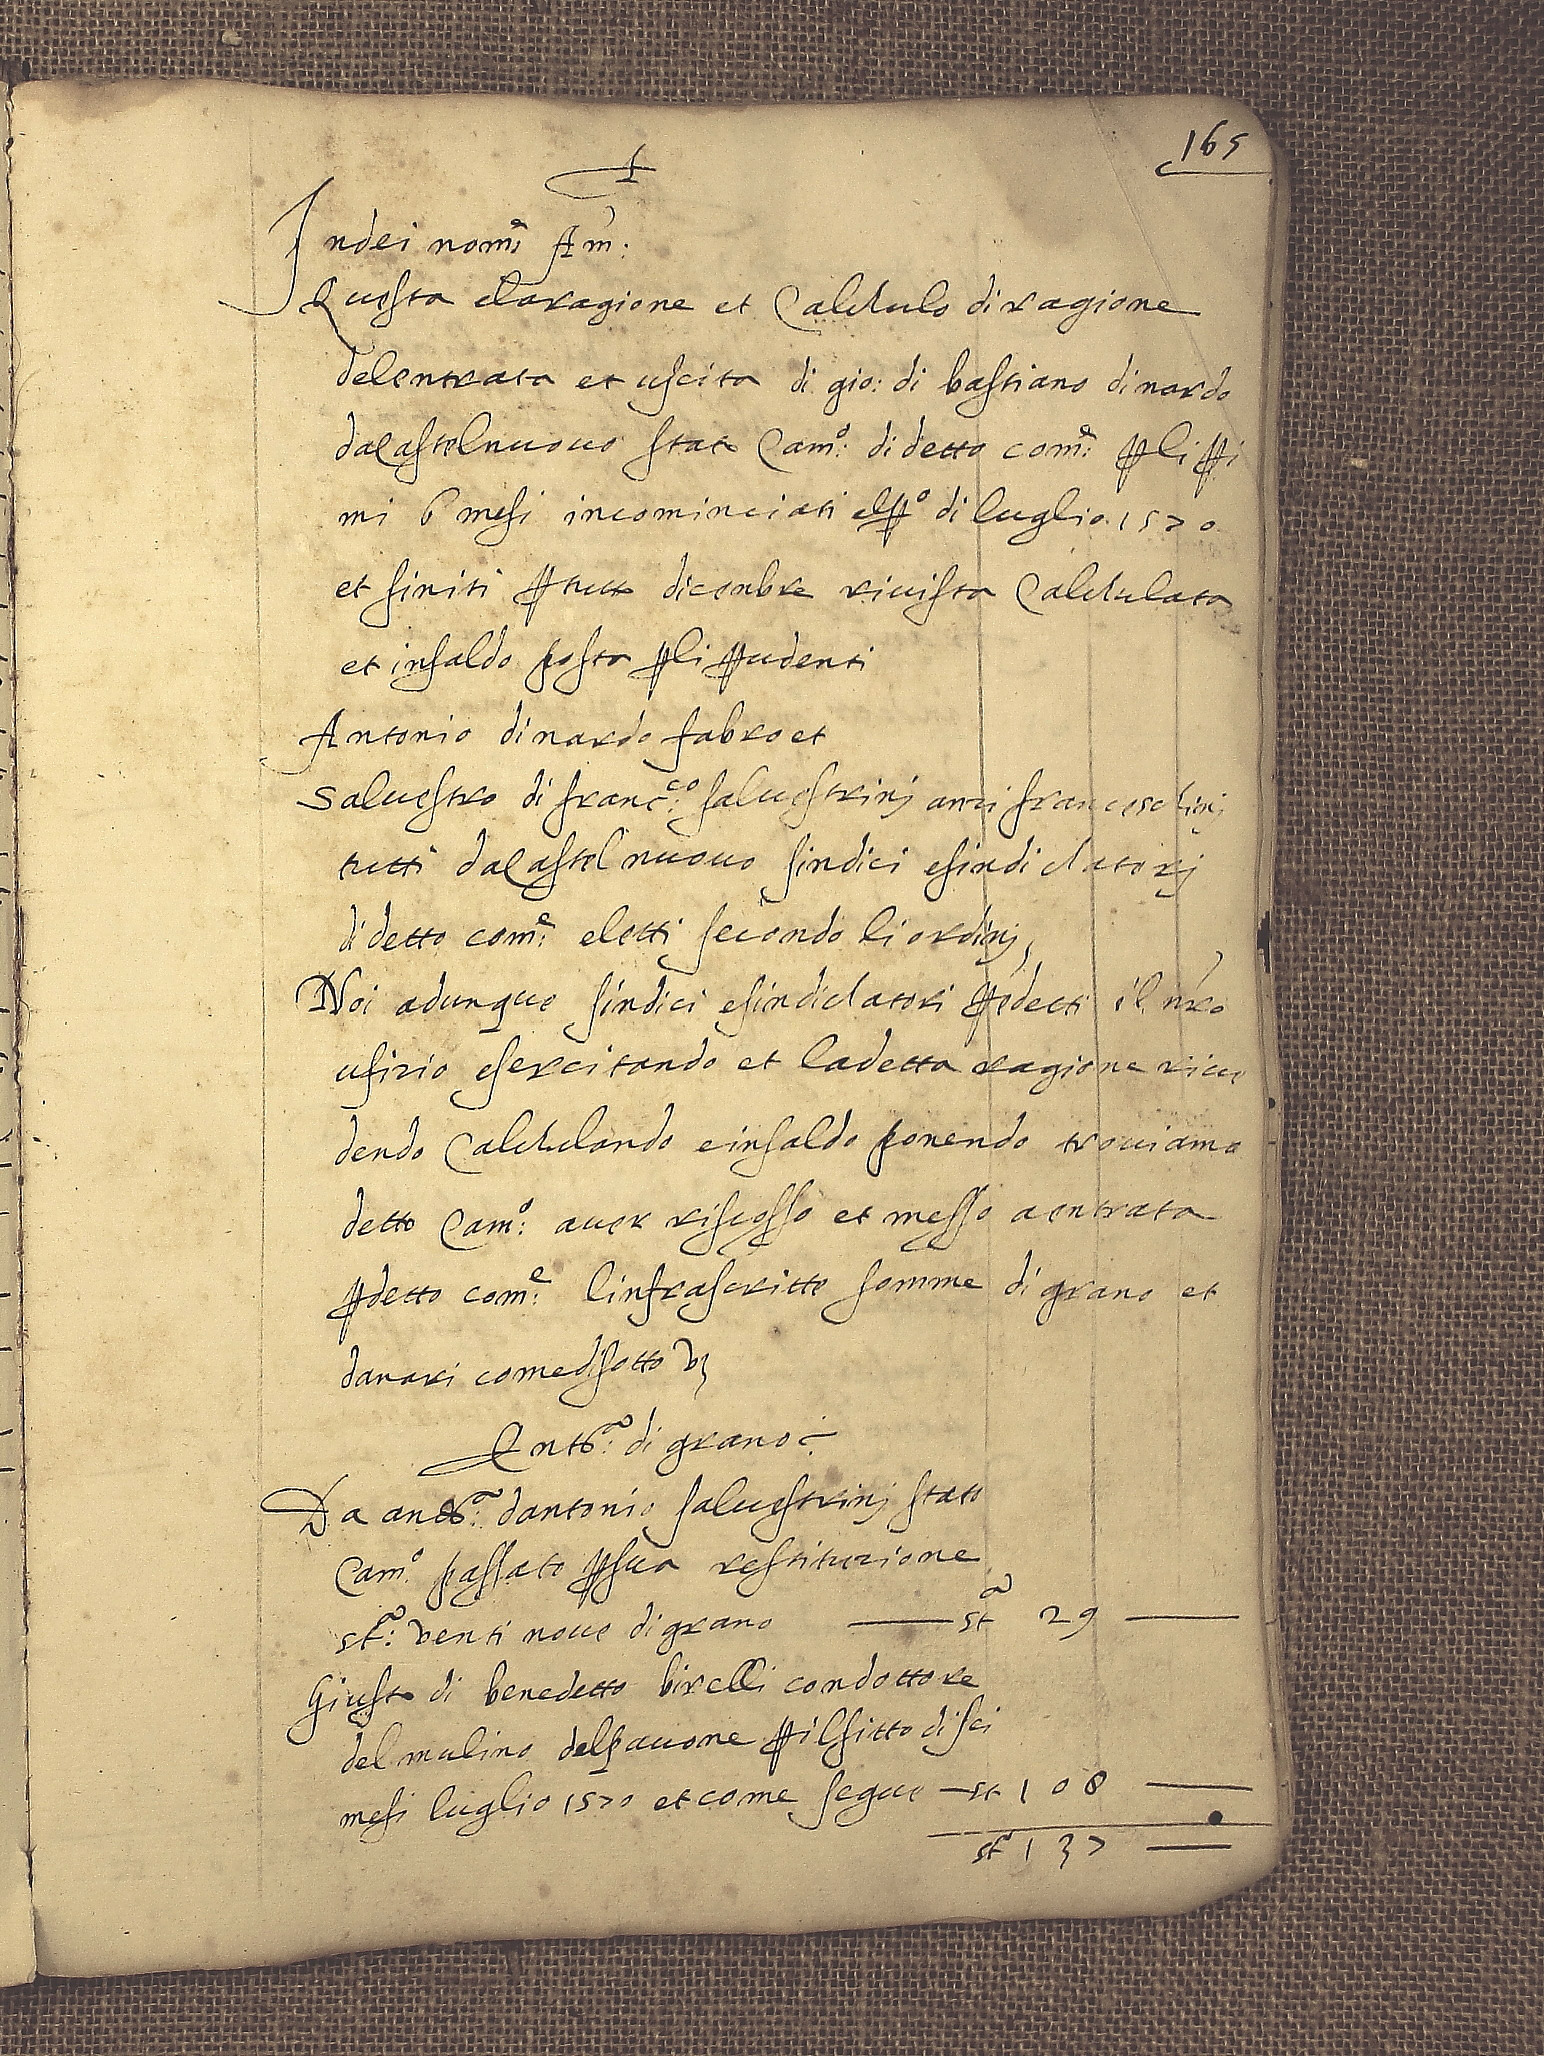 165
Indei nom.e Am:
Questa elaragione et Calchulo diragione
delentrata et uscita di gio: di bastiano dinardo
daCastelnuovo stato Cam.o: didetto com.e: pli pi
mi 6 mesi incominciati elp.o di luglio 1570
et finiti ptutto dicenbre rivista Calchulata
et insaldo posta pli pudenti
Antonio dinardo fabro et
Salvestro di franc.co: salvestrinj anzi franceschinj
tutti daCastelnuovo sindici esindichatorj
di detto com.e: eletti secondo li ordinj,
Noi adunque sindici esindichatori pedetti il nro
ufizio esercitando et ladetta ragione rive
dendo Calchulando einsaldo ponendo troviamo
detto Cam.o: aver riscosso et messo aentrata
pdetto com.e: linfrascritte somme di grano et
danari comedisotto vz
Entr.a: di grano
Da andr.a: dantonio salvestrinj stato
Cam.o passato psua restituzione
st.a: venti nove digrano — st.a 29 —
Giusto di benedetto birelli condottore
del mulino delpavone pilfitto disei
mesi luglio 1570 et come segue — st 108 —
st.a 137 —